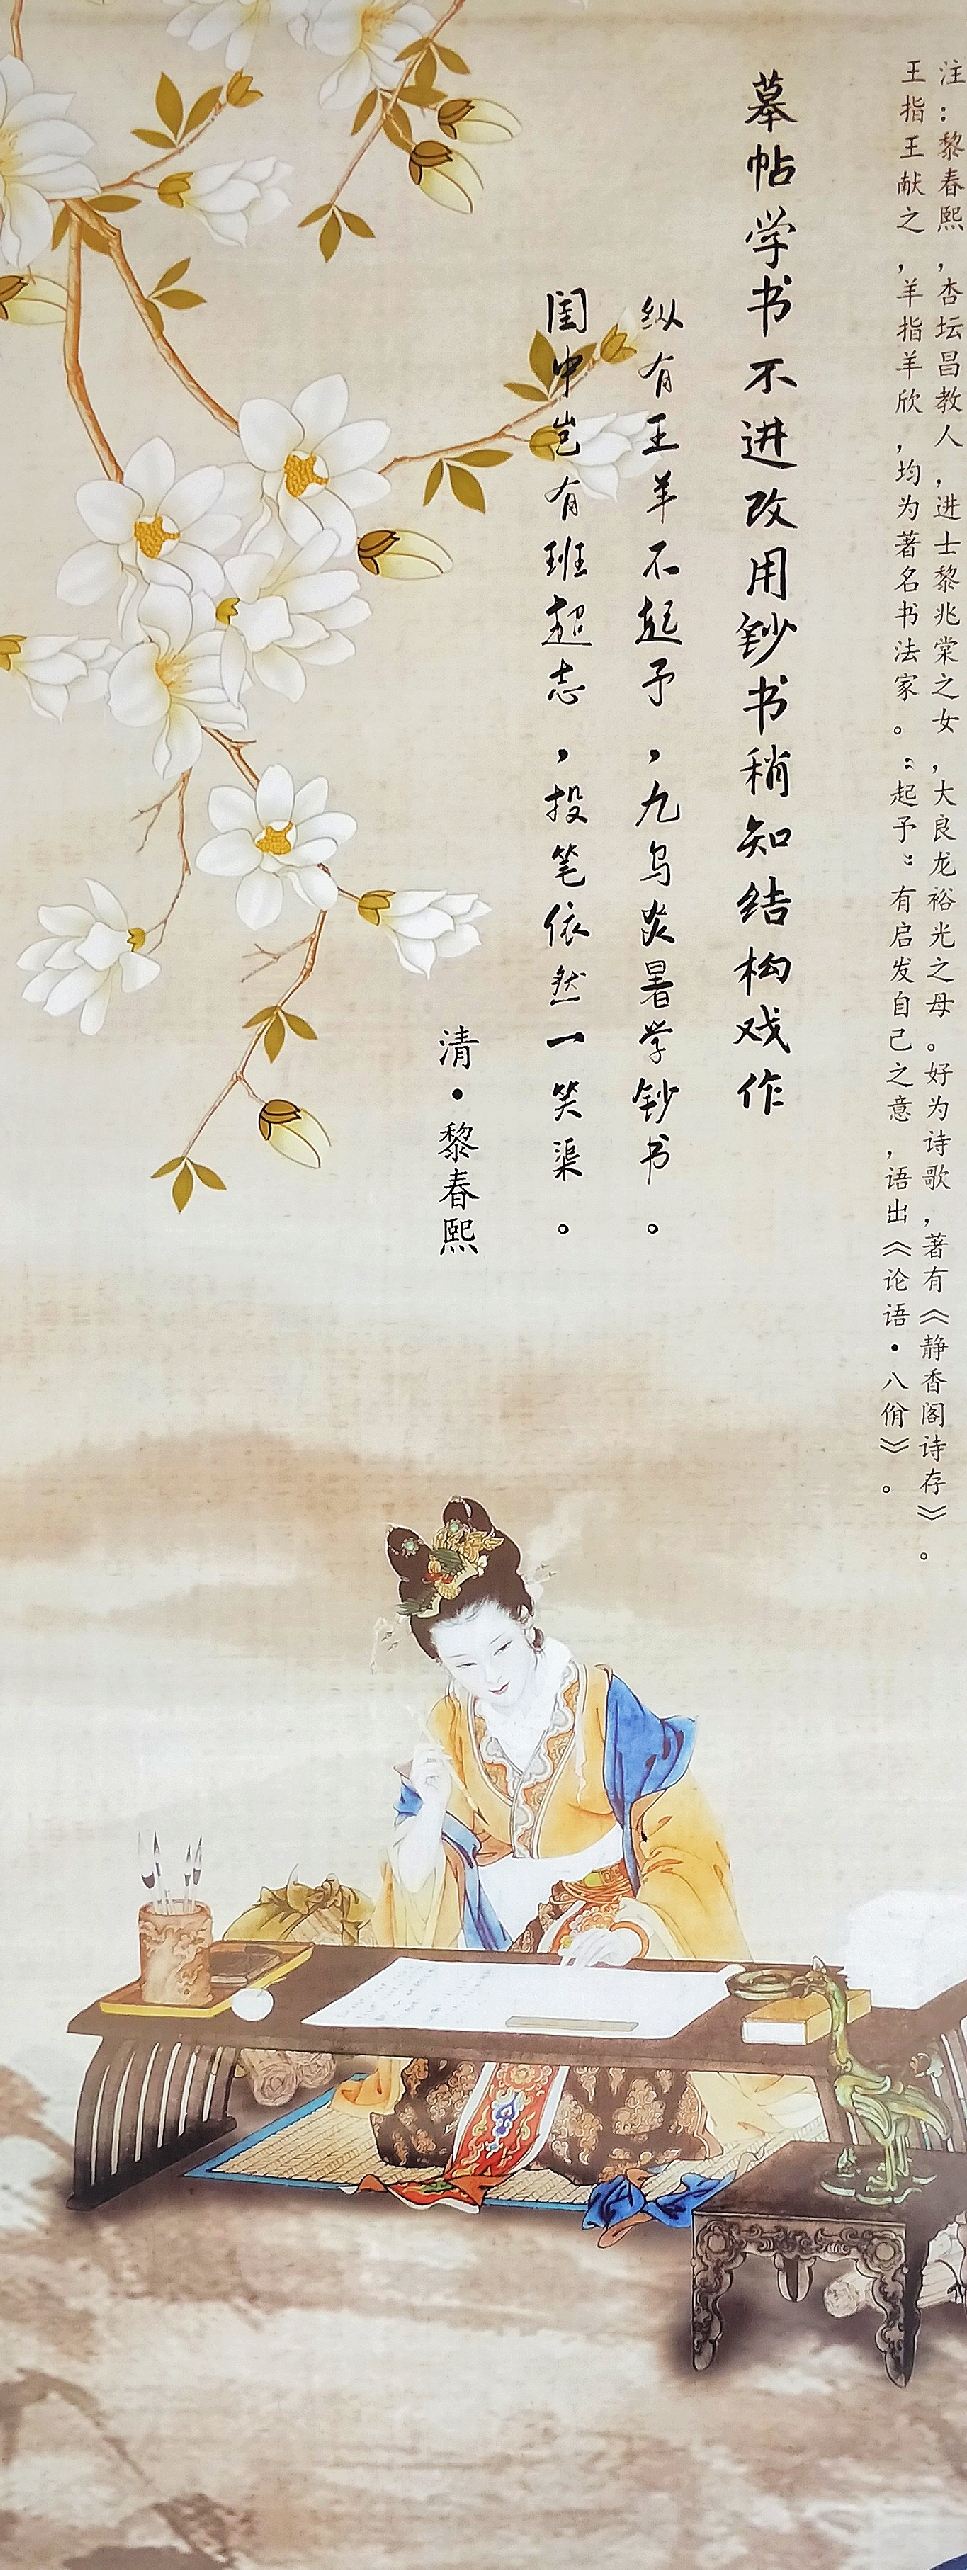 注：黎春熙，杏坛昌教人，进士黎兆棠之女，大良龙裕光之母。好为诗歌，著有《静香阁诗存》。
王指王献之，羊指羊欣，均为著名书法家。“起予”有启发自己之意，语出《论语·八佾》。
摹帖学书不进改用钞书稍知结构戏作
纵有王羊不起予，九乌炎暑学钞书。
闺中岂有班超志，投笔依然一笑渠。
清·黎春熙